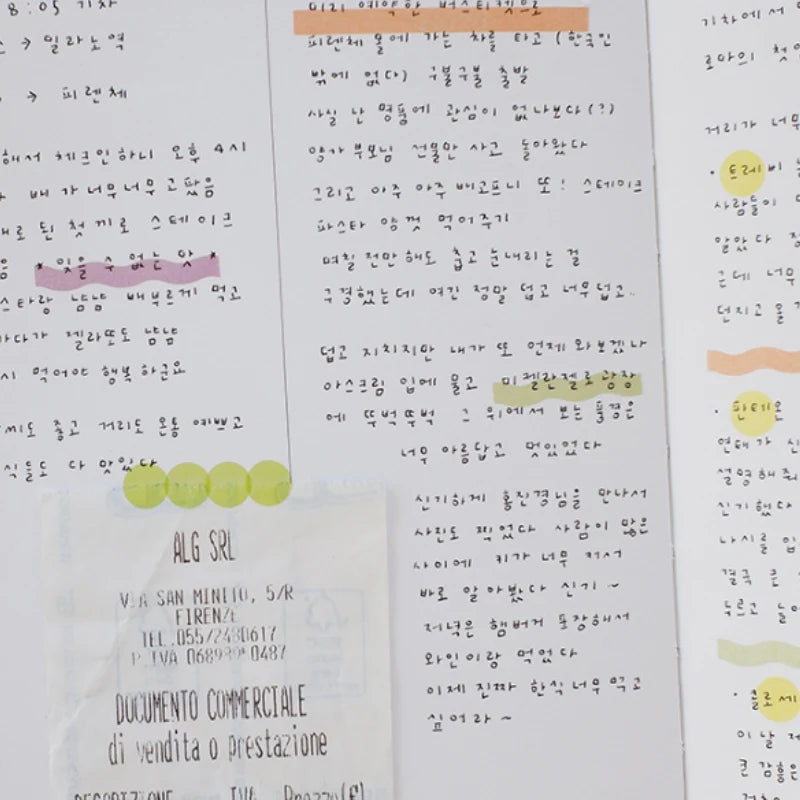 8:05 기차
→ 밀라노역
→ 피렌체
해서 체크인하니 오후 4시
배가 너무너무 고팠음
로 된 첫끼로 스테이크
* 잊을 수 없는 맛 *
스타랑 냠냠 배부르게 먹고
가다가 젤라또도 냠냠
시 먹어야 행복 하군요
씨도 좋고 거리도 온통 예쁘고
식들도 다 맛있다
ALG SRL
VIA SAN MINITO, 5/R
FIRENZE
TEL.055/2480617
P.IVA
DOCUMENTO COMMERCIALE
di vendita o prestazione
DESCRIZIONE IVA Prezzo(€)
미리 예약한 버스티켓으로
피렌체 몰에 가는 차를 타고 (한국인
밖에 없다) 구불구불 출발
사실 난 명품에 관심이 없나보다(?)
양가부모님 선물만 사고 돌아왔다
그리고 아주 아주 배고프니 또! 스테이크
파스타 양껏 먹어주기
며칠 전만 해도 춥고 눈내리는 걸
구경했는데 여긴 정말 덥고 너무덥고..
덥고 지치지만 내가 또 언제 와보겠나
아스크림 입에 물고 미켈란젤로광장
에 뚜벅뚜벅 그 위에서 보는 풍경은
너무 아름답고 멋있었다
신기하게 홍진경님을 만나서
사진도 찍었다 사람이 많은
사이에 키가 너무 커서
바로 알아봤다 신기~
저녁은 햄버거 포장해서
와인이랑 먹었다
이제 진짜 한식 너무 먹고
싶어라~
기차에서
로마의 첫
거리가 너무
· 트레비
사람들이
알았다
근데 너무
던지고 올
· 판테온
연태가 신
설명해줘
신기했다
나시를 입
결국 큰
두르고 들어
· 콜로세
이날
큰 감흥은